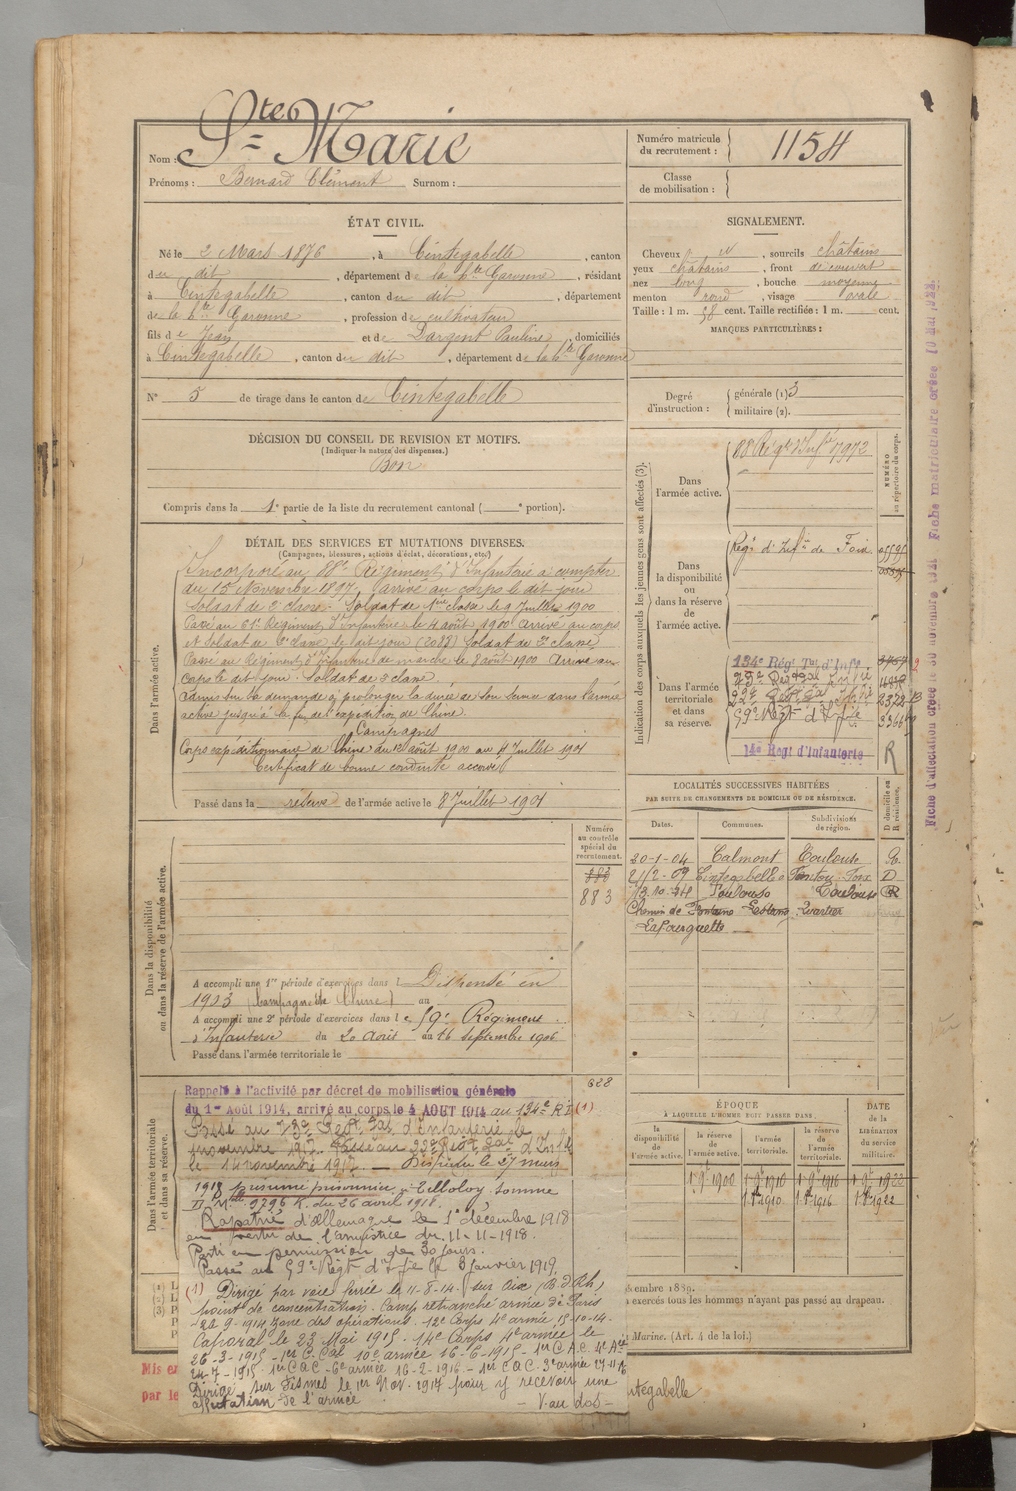 Nom : Ste Marie
Prénoms : Bernard Clément Surnom :
Numéro matricule du recrutement : 1154
Classe de mobilisation :
ÉTAT CIVIL.
Né le 2 Mars 1876, à Cintegabelle, canton
du dit, département de la hte Garonne, résidant
à Cintegabelle, canton du dit, département
de la hte Garonne, profession de cultivateur
fils de Jean et de Dargent Pauline, domiciliés
à Cintegabelle, canton du dit, département de la hte Garonne
N° 5 de tirage dans le canton de Cintegabelle
SIGNALEMENT.
Cheveux, sourcils châtains
yeux châtains, front découvert
nez long, bouche moyenne
menton rond, visage ovale
Taille : 1 m. 58 cent. Taille rectifiée : 1 m. cent.
MARQUES PARTICULIÈRES :
Degré d'instruction : générale (1) 3
militaire (2).
DÉCISION DU CONSEIL DE REVISION ET MOTIFS.
(Indiquer la nature des dispenses.)
Bon
Compris dans la 1e partie de la liste du recrutement cantonal ( e portion).
DÉTAIL DES SERVICES ET MUTATIONS DIVERSES.
(Campagnes, blessures, actions d'éclat, décorations, etc.)
Dans l'armée active.
Incorporé au 88e Régiment d'Infanterie à compter
du 15 Novembre 1897, arrivé au corps le dit jour
Soldat de 2e classe. Soldat de 1ère classe le 9 Juillet 1900
Passé au 61e Régiment d'Infanterie le 4 août 1900 Arrivé au corps
et Soldat de 2e classe le dit jour Soldat de 2e classe
Passé au Régiment d'infanterie de marche le 8 août 1900 Arrivé au
corps le dit jour. Soldat de 2e classe.
Admis sur sa demande à prolonger la durée de son service dans l'armée
active jusqu'à la fin de l'expédition de Chine.
Campagnes
Corps expéditionnaire de Chine du 12 août 1900 au 4 Juillet 1901
Certificat de bonne conduite accordé
Passé dans la réserve de l'armée active le 8 Juillet 1901
Indication des corps auxquels les jeunes gens sont affectés (3).
NUMÉRO au répertoire du corps.
Dans l'armée active.
88 Régt d'Infie 7972
Dans la disponibilité ou dans la réserve de l'armée active.
Régt d'Infie de Foix
Dans l'armée territoriale et dans sa réserve.
134e Régt Tal d'Infie
59e Régt d'Ifie
14e Régt d'Infanterie R
LOCALITÉS SUCCESSIVES HABITÉES
PAR SUITE DE CHANGEMENTS DE DOMICILE OU DE RÉSIDENCE.
Dates. Communes. Subdivisions de région. D domicile ou R résidence.
20-1-04 Calmont Toulouse R.
21/2-09 Cintegabelle Foix D
Toulouse Toulouse R
Chemin de Quartier
Lafourguette
Dans la disponibilité ou dans la réserve de l'armée active.
Numéro au contrôle spécial du recrutement.
883
883
A accompli une 1re période d'exercices dans l Dispensé en
1903 (campagne de Chine) au
A accompli une 2e période d'exercices dans le 59e Régiment
d'Infanterie du 20 Août au 16 septembre 1906
Passé dans l'armée territoriale le
Dans l'armée territoriale et dans sa réserve.
Rappelé à l'activité par décret de mobilisation générale
du 1er Août 1914, arrivé au corps le 4 AOUT 1914 au 134e R I (1)
Passé au Régt Tal d'Infanterie le
novembre 1917. Passé au Régt Tal d'Infie
le 14 novembre 1917. — Disparu le 27 mars
1918 présumé prisonnier à Tilloloy Somme
D. Mle 9796 K. du 26 avril 1918.
Rapatrié d'Allemagne le 1er décembre 1918
en vertu de l'armistice du 11-11-1918.
Parti en permission de 30 jours.
Passé au 59e Régt d'Ifie le 8 janvier 1919.
(1) Dirigé par voie ferrée le 11-8-14 sur Aix (B. d Rh)
point de concentration. Camp retranché armée de Paris
22-9-1914 zone des opérations. 12e Corps 4e armée 15-10-14.
Caporal le 23 Mai 1915. 14e Corps 4e armée le
26-3-1915 - 1er C. Cal 10e armée 16-6-1915 - 1er C.A.C. 4e Aée
24-7-1915. 1er C A C - 6e armée 16-2-1916 - 1er C A C. 3e armée
Dirigé sur Fismes le 1er Nov. 1917 pour y recevoir une
affectation de l'armée - V. au dos -
ÉPOQUE
À LAQUELLE L'HOMME DOIT PASSER DANS
la disponibilité de l'armée active. la réserve de l'armée active. l'armée territoriale. la réserve de l'armée territoriale.
DATE de la LIBÉRATION du service militaire.
1er 9bre 1900 1er 9bre 1910 1er 9bre 1916 1er 9bre 1922
1er 8bre 1910 1er 8bre 1916 1er 8bre 1922
embre 1889.
exercés tous les hommes n'ayant pas passé au drapeau.
Marine. (Art. 4 de la loi.)
Mis en
par le
ntegabelle
Fiche d'affectation créée le 30 novembre 1921 Fiche matriculaire créée 10 Mai 1923.